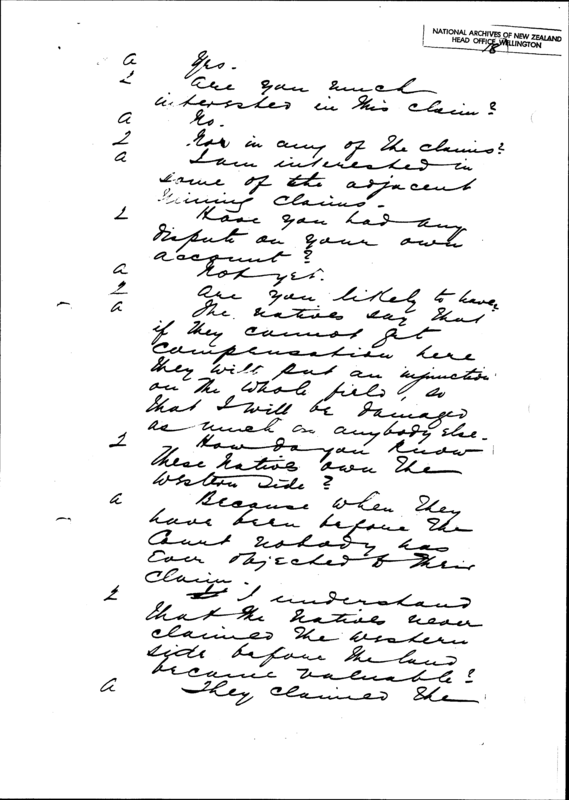 NATIONAL ARCHIVES OF NEW ZEALAND
HEAD OFFICE, WELLINGTON
a Yes.
2 Are you much
interested in this claim?
a No.
2 Nor in any of the claims?
a I am interested in
some of the adjacent
Mining Claims.
2 Have you had any
dispute on your own
account?
a Not yet.
2 Are you likely to have?
a The natives say that
if they cannot get
compensation here
they will put an injunction
on the whole field, so
that I will be damaged
as much as anybody else.
2 How do you know
these Natives own the
Western Side?
a Because when they
have been before the
Court nobody has
ever objected to their
claim.
2 I understand
that the Natives never
claimed the western
side before the land
became valuable?
a They claimed the